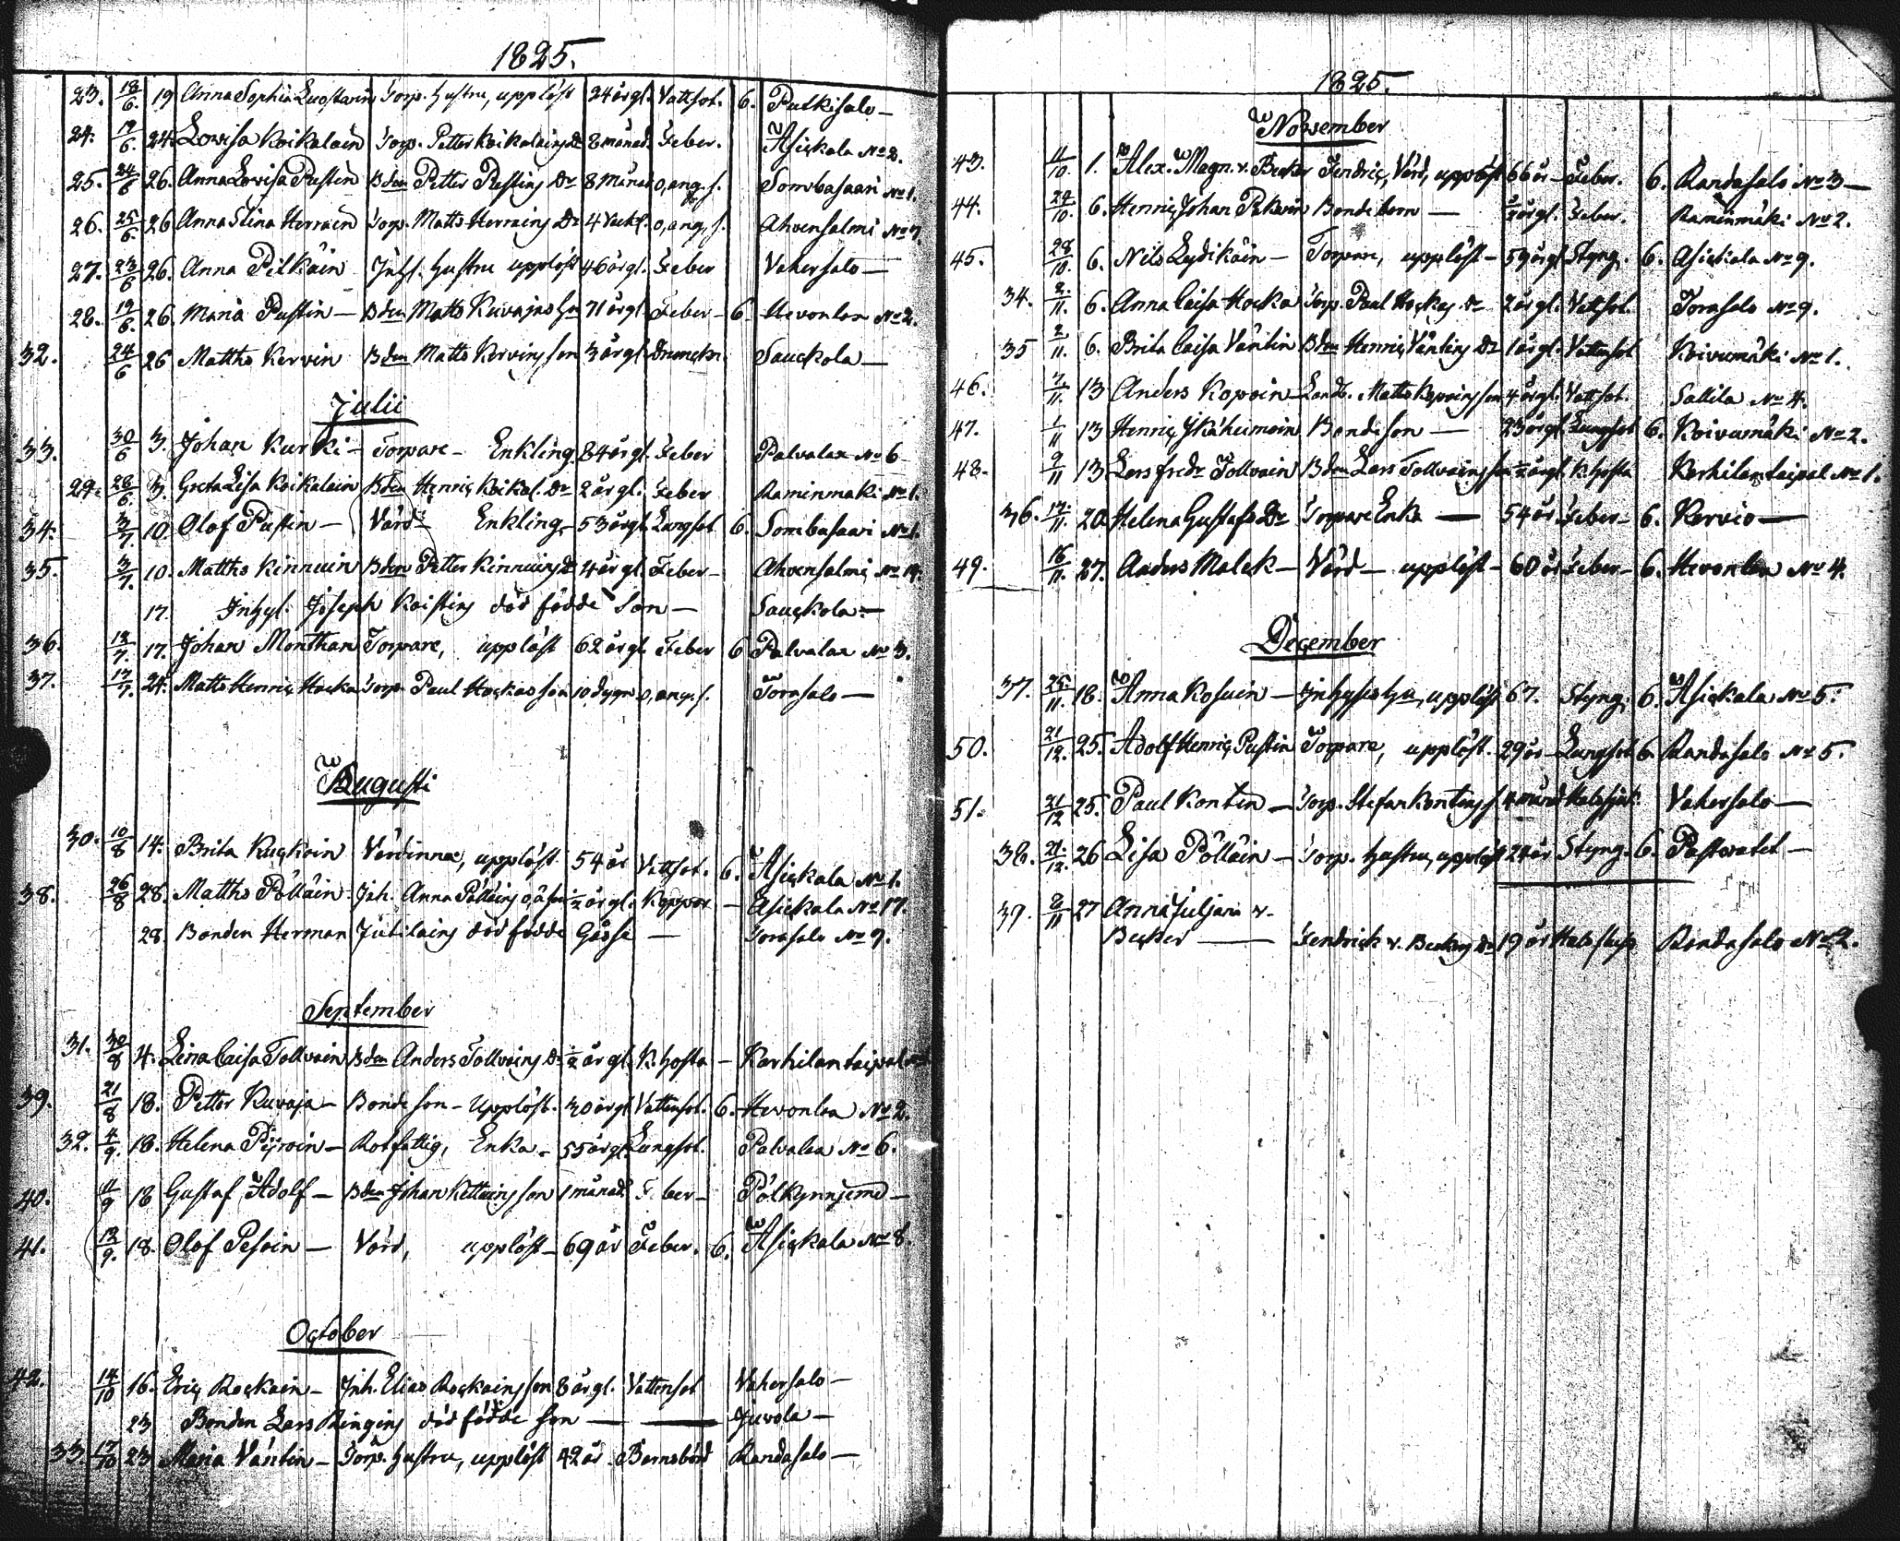 1825.
23. 18/6. 19 Anna Sophia Luostarin Torp. hustru, upplöst 24 år gl. Vattsot. 6. Putkisalo —
24. 19/6. 24. Lovisa Koikalain Torp. Petter Koikalains Dr 8 månad. Feber. Asickala No 2.
25. 24/6 26. Anna Lovisa Pustin Bden Petter Pustins Dr 8 månad o, ang. s. Sombasaari No 1.
26. 25/6. 26 Anna Stina Herrain Torp. Matts Herrains Dr 4 Veck. o, ang, s. Ahvensalmi No 7.
27. 23/6 26. Anna Pilkäin Inhs. hustru upplöst 46 år gl. Feber Vahersalo —
28. 19/6. 26. Maria Pustin — Bden Matts Kuvajas hu 71 år gl. Feber — 6. Hevonlax No 2.
32. 24/6 26 Matths Kervin Bden Matts Kervins son 3 år gl. Saukola —
Julii
33. 30/6 3. Johan Kurki — Torpare — Enkling 84 år gl. Feber Palvalax No 6
29. 28/6. 3. Greta Lisa Koikalain Bden Henric Koikal. Dr 2 år gl. Feber Raminmäki No 1.
34. 3/7. 10. Olof Pustin — Värd — Enkling, 53 år gl. Lungsot 6. Sombasaari No 1.
35. 3/7. 10. Matths Kinnuin Bden Petter Kinnuins 4 år gl. Feber — Ahvensalmi No 14.
17. Inhys. Joseph Koistins död födde Son — Sauckola —
36. 13/7. 17. Johan Monthan Torpare, upplöst 62 år gl. Feber 6 Palvalax No 3.
37. 17/7. 24. Matts Henric Hocka Torp. Paul Hockas son 10 dygn o, ang. s. Torasalo —
Augusti
30. 10/8 14. Brita Kuckoin Värdinna, upplöst 54 år Vattsot. 6. Asickala No 1.
38. 26/8 28. Matths Pölläin Inh. Anna Pölläins o, ä son ½ år gl. Koppor — Asickala No 17.
28. Bonden Herman Jutilains död födde Gosse — Torasalo No 9.
September
31. 30/8 4. Lena Caisa Tollvain Bden Anders Tollvains Dr ½ år gl. K. hosta — Karhilantaipal
39. 21/8 18. Petter Kuvaja — Bonde son — Upplöst. 30 år gl. Vattensot. 6. Hevonlax No 2.
32. 4/9. 18. Helena — Rotfattig, Enka — 55 år gl. Lungsot. Palvalax No 6.
40. 11/9 18 Gustaf Adolf — Bden Johan son 1 månad Feber — Pölkynniemi —
41. 13/9. 18. Olof Pesoin — Värd, upplöst — 69 år Feber. 6. Asickala No 8.
October
42. 14/10 16. Eric Rockain — Inh. Elias Rockains son 8 år gl. Vattensot Vahersalo —
23 Bonden Lars Ringins död födde son — Juvola —
33. 17/10 23 Maria Väntin — Torp. hustru, upplöst 42 år Barnsbörd Randasalo —
1825.
November
43. 11/10. 1. Alex. Magn. v. Becker Fendric, Värd, upplöst 66 år — Feber. 6. Randasalo No 3 —
44. 24/10. 6. Henric Johan Bondebarn — ½ år gl. Feber. Raminmäki No 2.
45. 28/10. 6. Nils Lydikäin — Torpare, upplöst — 59 år gl. Styng. 6. Asickala No 9.
34. 2/11. 6. Anna Caisa Hocka Torp. Paul Hockas Dr 2 år gl. Vattsot. Torasalo No 9.
35 2/11. 6. Brita Caisa Väntin Bden Henric Väntins Dr 1 år gl. Vattensot Koivumäki No 1.
46. 7/11. 13 Anders Kopoin — Landb. Matts Kopoins son 4 år gl. Vattsot. Sallila No 4.
47. 1/11 13 Henric Ikäheimoin Bondeson — 23 år gl. Lungsot 6. Koivumäki No 2.
48. 9/11 13 Lars Fredr Tollvain Bden Lars Tollvains son ½ år gl. K. hosta Karhilantaipal No 1.
36. 17/11. 20. Helena Gustafs Dr Torpare Enka — 54 år. Feber — 6. Kervio —
49. 16/11. 27. Anders Malck — Värd — upplöst — 60 år Feber — 6. Hevonlax No 4.
December
37. 25/11. 18. Anna Kosuin — Inhyses hu, upplöst 67. Styng. 6. Asickala No 5.
50. 21/12. 25. Adolf Henric Pustin Torpare, upplöst. 29 år Lungsot 6. Randasalo No 5.
51. 21/12 25. Paul Kontin — Torp. Stefan Kontins s. 4 månad Halssjuk. Vahersalo —
38. 21/12. 26 Lisa Pölläin — Torp. hustru, upplöst 24 år Styng. 6. Pastoratet —
39. 8/11 27 Anna Juliana v.
Becker — Fendrick v. Beckers Dr 19 år Randasalo No 2.